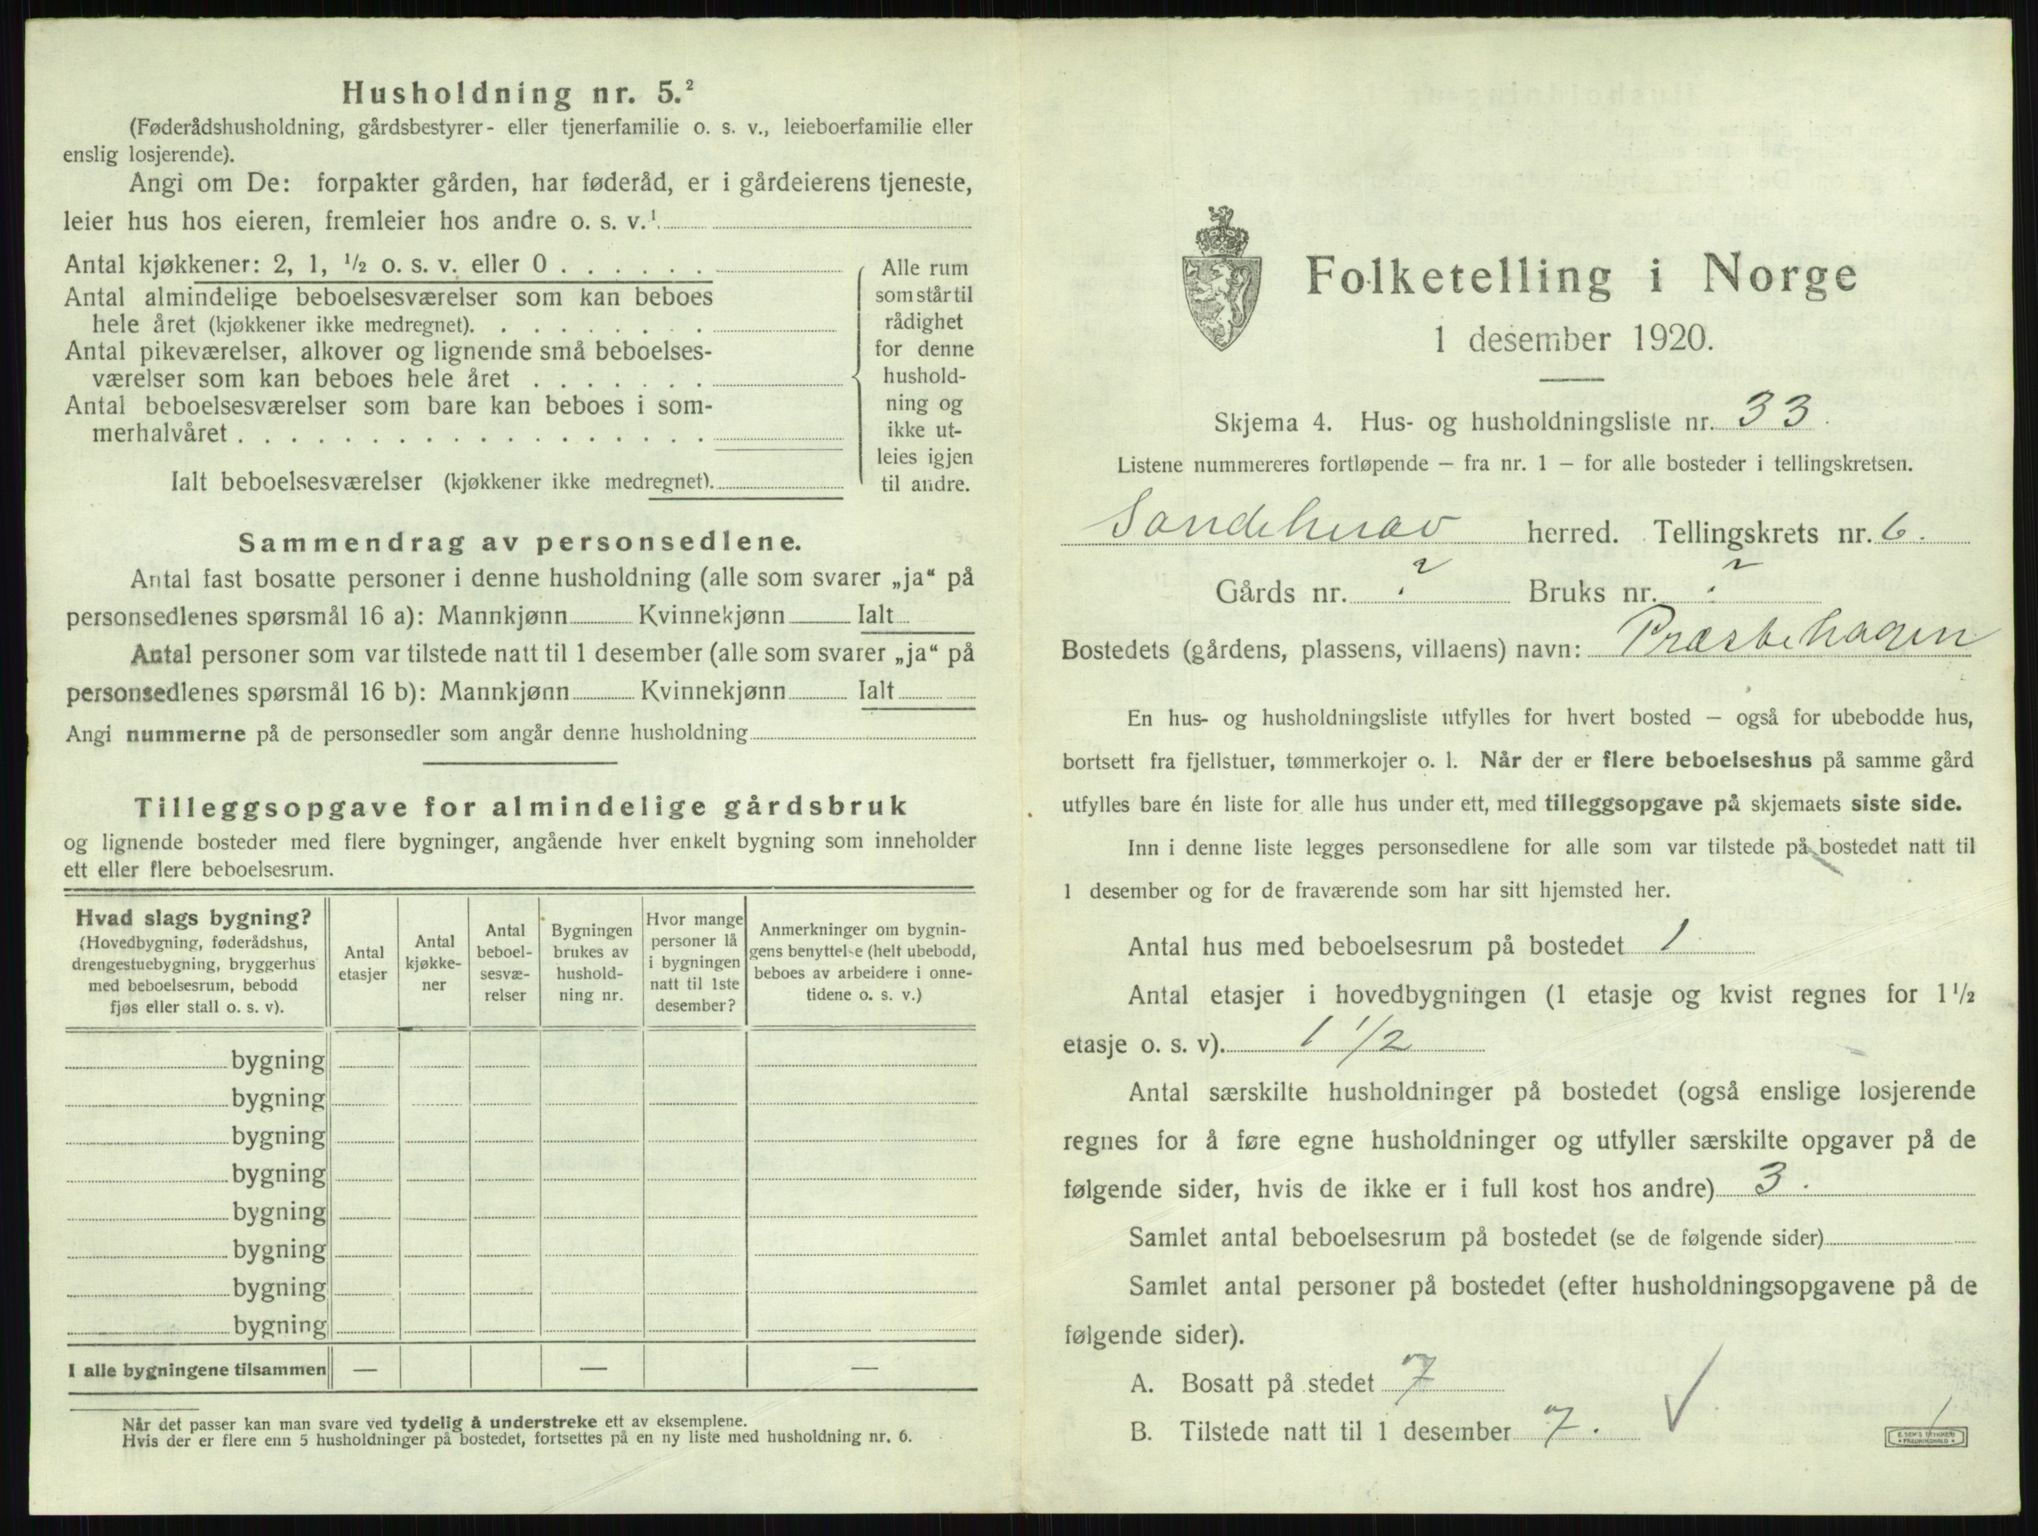 Husholdning nr. 5.²
(Føderådshusholdning, gårdsbestyrer- eller tjenerfamilie o. s. v., leieboerfamilie eller
enslig losjerende).
Angi om De: forpakter gården, har føderåd, er i gårdeierens tjeneste,
leier hus hos eieren, fremleier hos andre o. s. v.¹
Antal kjøkkener: 2, 1, ½ o. s. v. eller 0 . . . . . .
Antal almindelige beboelsesværelser som kan beboes
hele året (kjøkkener ikke medregnet). . . . . . . . .
Antal pikeværelser, alkover og lignende små beboelses-
værelser som kan beboes hele året . . . . . . .
Antal beboelsesværelser som bare kan beboes i som-
merhalvåret . . . . . . . . . . . . . . . . . .
Ialt beboelsesværelser (kjøkkener ikke medregnet).
Alle rum
som står til
rådighet
for denne
hushold-
ning og
ikke ut-
leies igjen
til andre.
Sammendrag av personsedlene.
Antal fast bosatte personer i denne husholdning (alle som svarer „ja“ på
personsedlenes spørsmål 16 a): Mannkjønn Kvinnekjønn Ialt
Antal personer som var tilstede natt til 1 desember (alle som svarer „ja“ på
personsedlenes spørsmål 16 b): Mannkjønn Kvinnekjønn Ialt
Angi nummerne på de personsedler som angår denne husholdning
Tilleggsopgave for almindelige gårdsbruk
og lignende bosteder med flere bygninger, angående hver enkelt bygning som inneholder
ett eller flere beboelsesrum.
Hvad slags bygning?
(Hovedbygning, føderådshus,
drengestuebygning, bryggerhus
med beboelsesrum, bebodd
fjøs eller stall o. s. v).
Antal
etasjer
Antal
kjøkke-
ner
Antal
beboel-
sesvæ-
relser
Bygningen
brukes av
hushold-
ning nr.
Hvor mange
personer lå
i bygningen
natt til 1ste
desember?
Anmerkninger om bygnin-
gens benyttelse (helt ubebodd,
beboes av arbeidere i onne-
tidene o. s. v.)
bygning
bygning
bygning
bygning
bygning
bygning
bygning
bygning
I alle bygningene tilsammen — — —
Når det passer kan man svare ved tydelig å understreke ett av eksemplene.
Hvis der er flere enn 5 husholdninger på bostedet, fortsettes på en ny liste med husholdning nr. 6.
Folketelling i Norge
1 desember 1920.
Skjema 4. Hus- og husholdningsliste nr. 33.
Listene nummereres fortløpende – fra nr. 1 – for alle bosteder i tellingskretsen.
Sandeherav herred. Tellingskrets nr. 6.
Gårds nr. ? Bruks nr. ?
Bostedets (gårdens, plassens, villaens) navn: Præstehagen
En hus- og husholdningsliste utfylles for hvert bosted – også for ubebodde hus,
bortsett fra fjellstuer, tømmerkojer o. l. Når der er flere beboelseshus på samme gård
utfylles bare én liste for alle hus under ett, med tilleggsopgave på skjemaets siste side.
Inn i denne liste legges personsedlene for alle som var tilstede på bostedet natt til
1 desember og for de fraværende som har sitt hjemsted her.
Antal hus med beboelsesrum på bostedet 1
Antal etasjer i hovedbygningen (1 etasje og kvist regnes for 1½
etasje o. s. v). 1 1/2
Antal særskilte husholdninger på bostedet (også enslige losjerende
regnes for å føre egne husholdninger og utfyller særskilte opgaver på de
følgende sider, hvis de ikke er i full kost hos andre) 3.
Samlet antal beboelsesrum på bostedet (se de følgende sider)
Samlet antal personer på bostedet (efter husholdningsopgavene på de
følgende sider).
A. Bosatt på stedet 7
B. Tilstede natt til 1 desember 7.